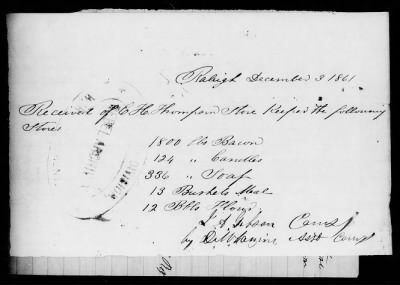 Raleigh December 3 1861
Received of C H Thompson Store Keeper the following
Stores
1800 lbs Bacon
124 " Candles
336 " Soap
13 Bushels Meal
12 Bbls Flour
Comsy
by Asst Comsy